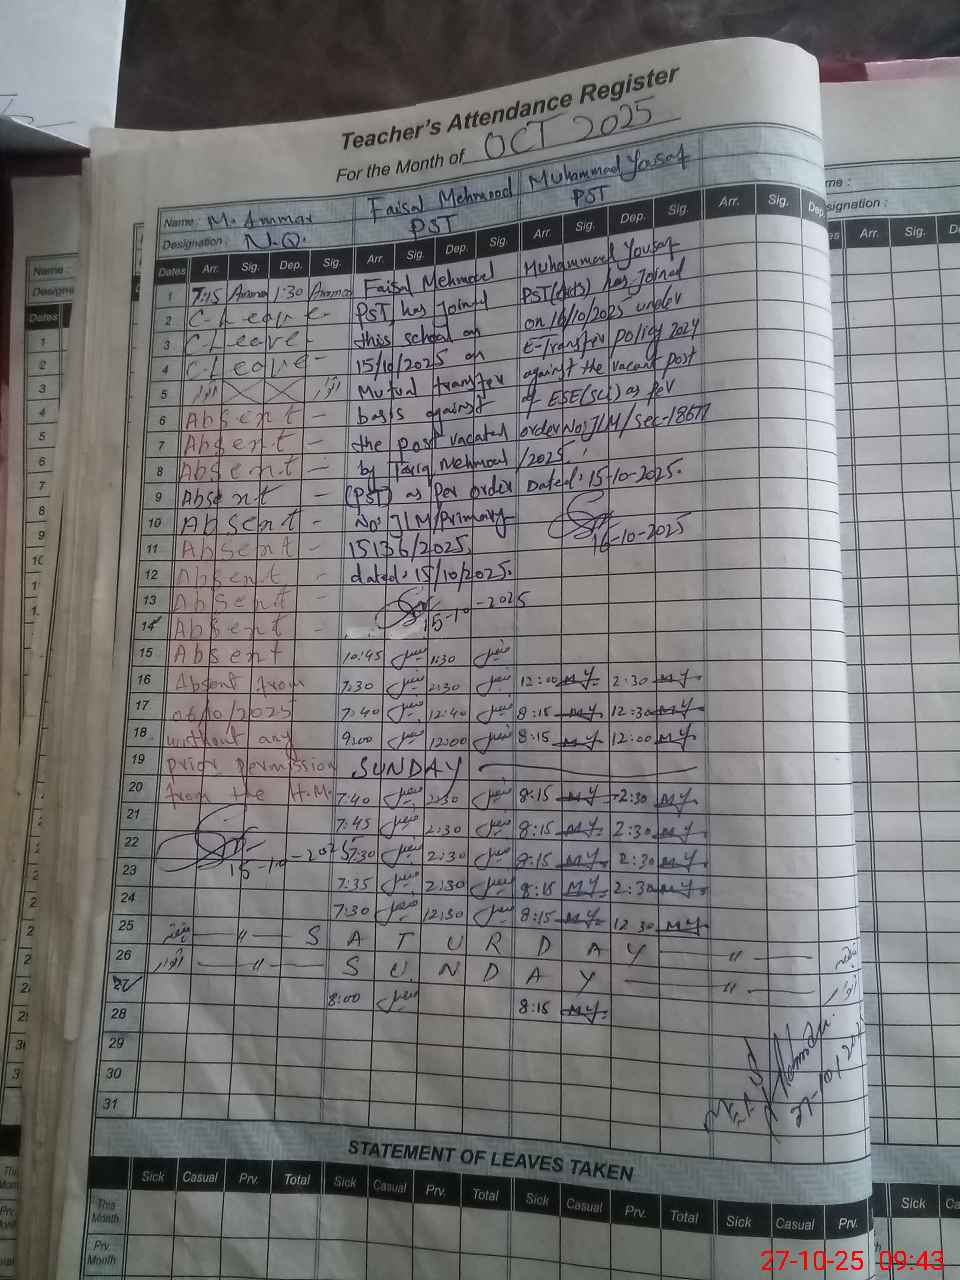 Teacher's Attendance Register
For the Month of OCT 2025
Name : M. Ammar Faisal Mehmood Muhammad Yousaf
Designation : N.Q. PST PST
Dates Arr. Sig. Dep. Sig. Arr. Sig. Dep. Sig. Arr. Sig. Dep. Sig. Arr. Sig. Dep.
1 7:15 Ammar 1:30 Ammar Faisal Mehmood Muhammad Yousaf
2 C-Leave - PST has Joined PST has Joined
3 C-Leave - this school on on 16/10/2025 under
4 C-Leave - 15/10/2025 on E-Transfer policy 2024
5 اتوار اتوار Mutual transfer against the vacant post
6 Absent - basis against of ESE(Sci) as per
7 Absent - the post vacated order No: JLM/Sec-
8 Absent - by Tariq Mehmood /2025.
9 Absent - (PST) as Per order Dated: 15-10-2025.
10 Absent - No: JLM/Primary
11 Absent - 15136/2025, 16-10-2025
12 Absent - dated: 15/10/2025.
13 Absent -
14 Absent - 15-10-2025
15 Absent 10:45 1:30
16 Absent from 7:30 2:30 12:00 M.Y. 2:30 M.Y.
17 06/10/2025 7:40 12:40 8:15 M.Y. 12:30 M.Y.
18 without any 9:00 12:00 8:15 M.Y. 12:00 M.Y.
19 prior permission SUNDAY
20 from the H.M. 7:40 2:30 8:15 M.Y. 2:30 M.Y.
21 7:45 2:30 8:15 M.Y. 2:30 M.Y.
22 15-10-2025 7:30 2:30 8:15 M.Y. 2:30 M.Y.
23 7:35 2:30 8:15 M.Y. 2:30 M.Y.
24 7:30 12:30 8:15 M.Y. 12:30 M.Y.
25 ہفتہ — " — SATURDAY — " — ہفتہ
26 اتوار — " — SUNDAY — " — اتوار
27 8:00 8:15 M.Y.
28
29
30
31
27-10-2025
STATEMENT OF LEAVES TAKEN
Sick Casual Prv. Total Sick Casual Prv. Total Sick Casual Prv. Total Sick Casual Prv.
This Month
Prv. Month
Name :
Dates
1
2
3
4
5
6
7
8
9
Arr. Sig.
Sick
27-10-25 09:43